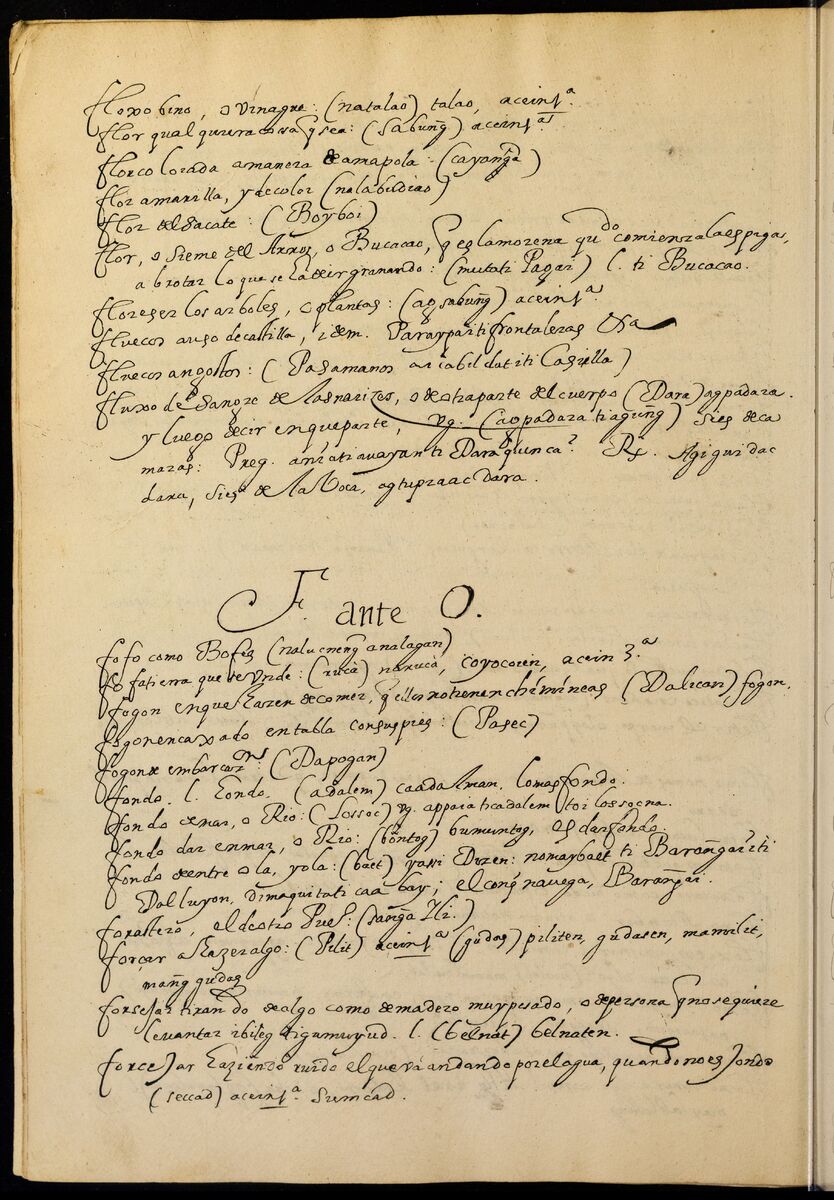 floxo bino, o vinagre: (natalao) talao, acein 1ª.
flor qual quiera cosa q̃ sea: (Sabung̃) acein 1ª
flor co lorada a manera de amapola: (cayanga)
flor amarilla, y de color (nalabildiao)
flor del Sacate: (Boyboi)
flor, o sieme del Arros, o Bucacao, q̃ es la morena qu.do comienza la espiga,
a brotar lo que se ha de ir granando: (mutati Pagai) l. ti Bucacao.
floreser los arboles, o plantas: (agsabung̃) acein 1ª.
fluecos a uso de castilla, idem. Paraypaiti frontaleras &a
fluecos angostos: (Pasamanos a
fluxo de Sangre de las narizes, o de otra parte del cuerpo (Dara) agpadara.
y luego decir en que parte, vg. (agpadara ti agung) si es de ca
maras: Preg. Rx. Agiguidac
dara, si es de la Boca, agtupraac dara.
F. ante O.
fofo como Bofes (nalucneng̃ analagan)
fofa tierra que se unde: (rucà) narucà, coyocoien, acein 3.ª
fogon en que hazen de comer, q̃ ellos no tienen chimineas (Dalican) fogon.
fogon encaxado en tabla con sus pies: (Pasec)
fogon de embarcaz.on: (Dapogan)
fondo. l. hondo. (adalem) caadalman. lo mas fondo.
fondo de mar, o Rio: (Lossoc) vg. appaia ti cadalem toi lossocna.
fondo dar en mar, o Rio: (bontog) bumuntog, es dar fondo.
fondo de entre ola, y ola: (baet) y assi Dizen: nomaybaet ti Barang̃ai iti
Dalluyon, dimaquitati caa bay; el con q̃ navega, Barang̃ai.
forastero, el de otro Pueb.º: (sang̃a Ili.)
forçar a hazer algo: (Pilit) acein 1ª (gudas) piliten, gudasen, mamilit,
mang̃gudas
forsejar tirando de algo como de madero muy pesado, o de persona q̃ no se quiere
levantar ibileg tigumuyud. l. (belnat) belnaten.
forcejar haziendo ruido el que va andando por el agua, quando no es hondo
(seccad) acein 1ª. Sumcad.